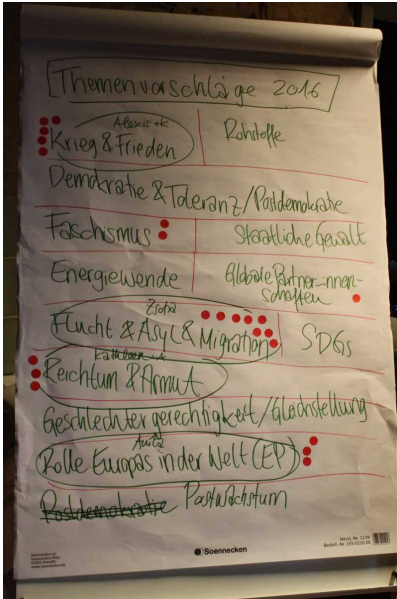 Themenvorschläge 2016
Alexis + K
Krieg & Frieden
Rohstoffe
Demokratie & Toleranz/Postdemokratie
Faschismus
Staatliche Gewalt
Energiewende
Globale Partner-innen-
schaften
Flucht & Asyl & Migration
SDGs
Kathleen
Reichtum & Armut
Geschlechtergerechtigkeit/Gleichstellung
Rolle Europas in der Welt (EP)
Postdemokratie Postwachstum
Soennecken
www.soennecken.de